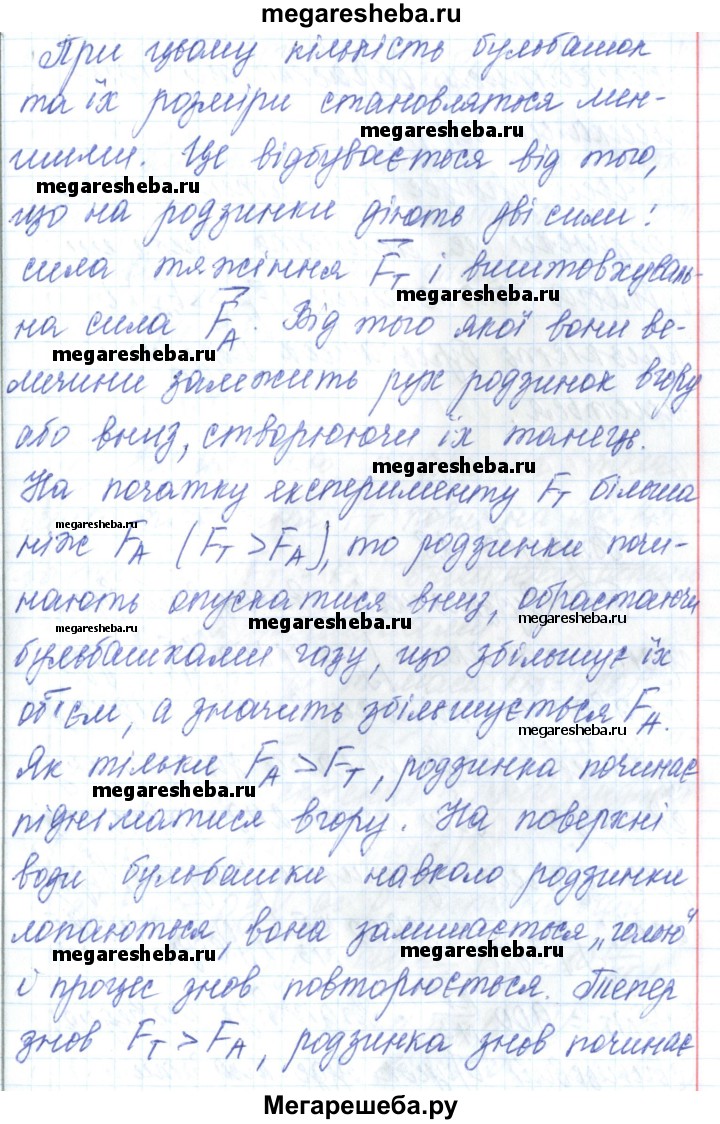 megaresheba.ru
При цьому кількість бульбашок
та їх розміри становляться мен-
megaresheba.ru
шими. Це відбувається від того,
megaresheba.ru
що на родзинки діють дві сили:
сила тяжіння F⃗т і виштовхуваль-
megaresheba.ru
на сила F⃗А. Від того якої вони ве-
megaresheba.ru
личини залежить рух родзинок вгору
або вниз, створюючи їх танець.
megaresheba.ru
На початку експерименту Fт більша
megaresheba.ru
ніж FА (Fт > FА), то родзинки почи-
megaresheba.ru
нають опускатися вниз, обрастаючи
megaresheba.ru megaresheba.ru
бульбашками газу, що збільшує їх
об'єм, а значить збільшується FА.
megaresheba.ru
Як тільки FА > Fт, родзинка починає
megaresheba.ru
підніматися вгору. На поверхні
води бульбашки навколо родзинки
лопаються, вона залишається „голою"
megaresheba.ru megaresheba.ru
і процес знов повторюється. Тепер
знов Fт > FА, родзинка знов починає
Мегарешеба.ру